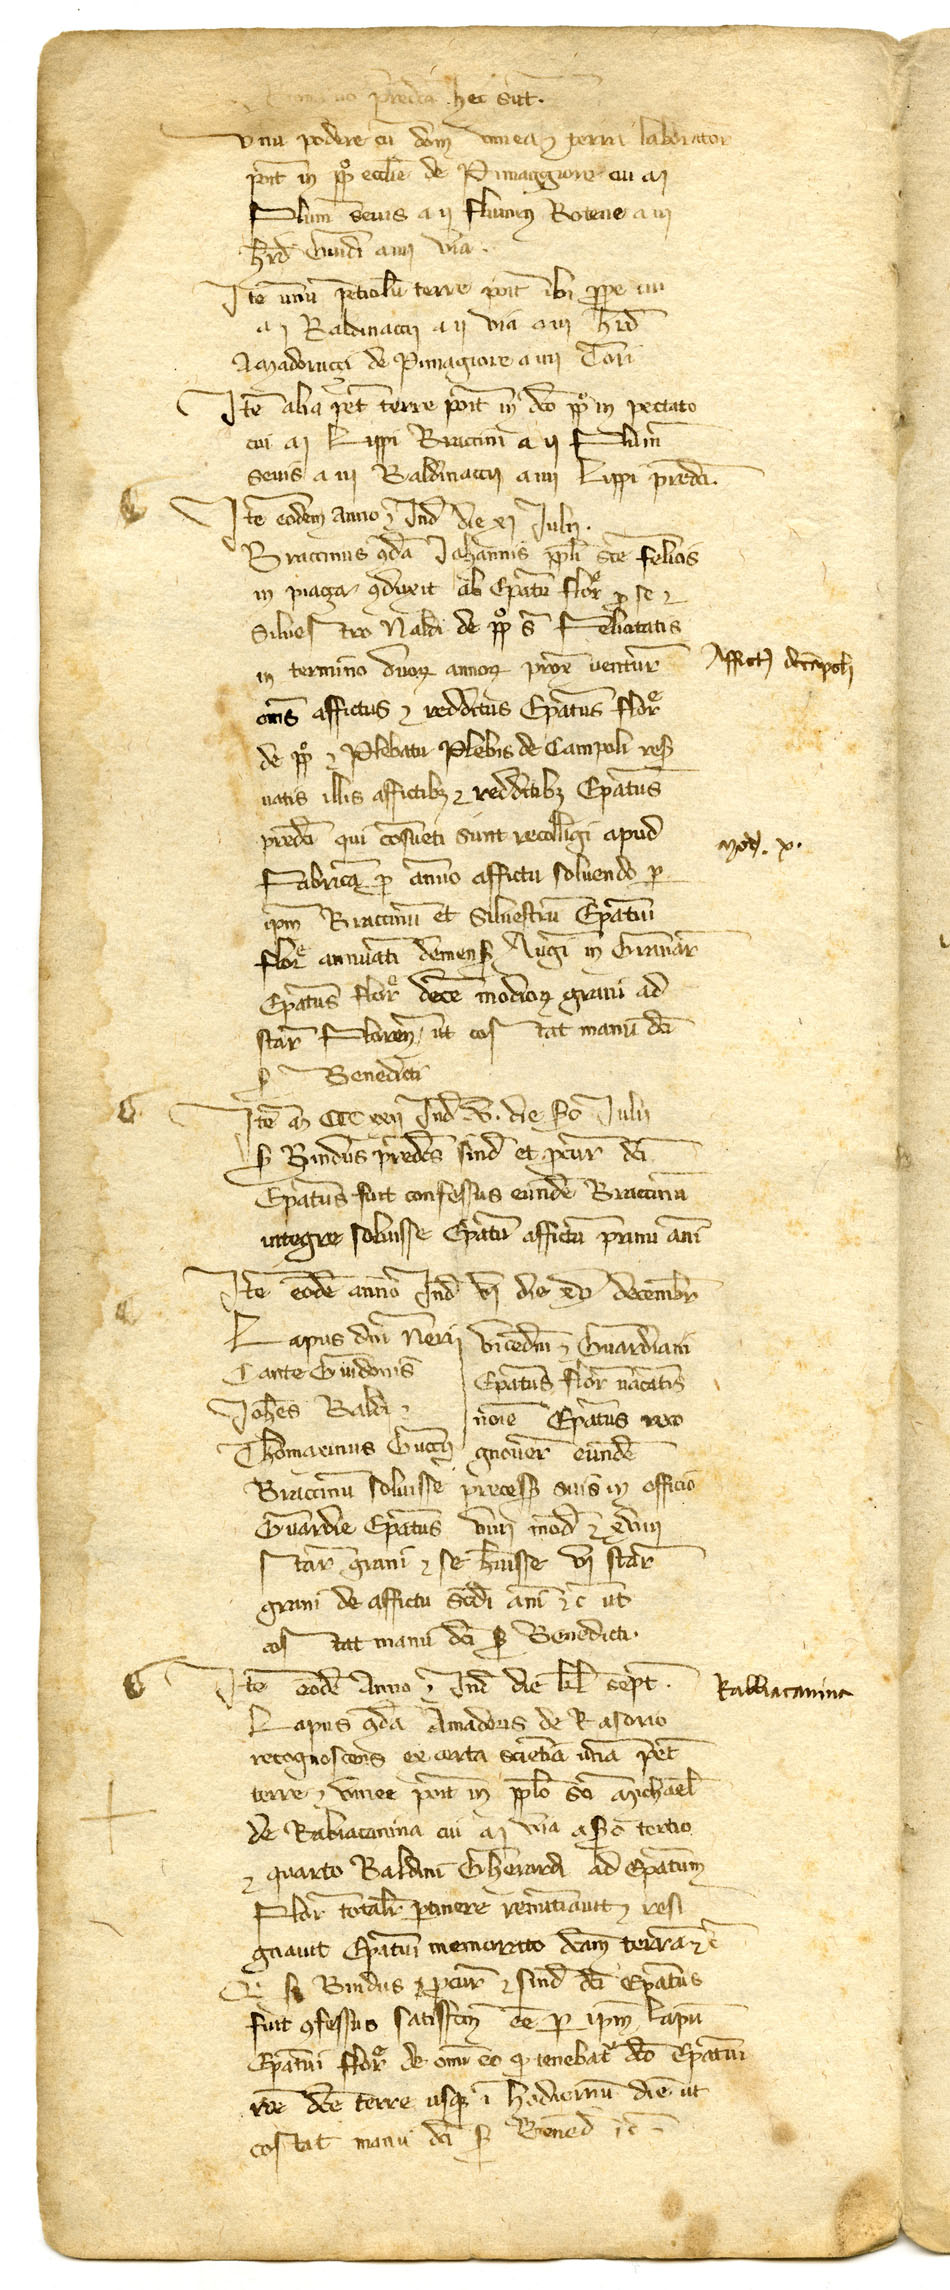 predca hec sut.
Unu podere cu dom vinea et terra laborator
poit in ppo ecclie de Pimaggiore cui a j
Flum Sevis a ij fluminis Rotene a iij
hrd Guidi a iiij via.
Ite unu petiolu terre poit ibi prope cui
a j Baldinaccij a ij via a iij hrd
Amadorucci de Pimagiore a iiij Tori
Ite alia pet terre poit in dco ppo in pectato
cui a j Lippi Braccini a ij Flum
Sevis a iij Baldinaccij a iiij Lippi predci.
Ite eodem anno et Ind die xj Julij.
Braccinus qda Johannis ppli Sce Felicis
in piaza qduxit ab Epatu flor p se et
Silvestro Naldi de ppo S Felicitatis
in termino duor annor prox ventur
Affict decapoli
oms affictus et reddctus Epatus flor
de ppo et Plebatu Plebis de Campoli res
vatis illis affictibz et reddctibz Epatus
predci qui cosueti sunt recolligi apud
Mod. x.
Fabrica p annuo affictu solvendo p
ipm Braccinu et Silvestru Epatui
flor annuati de mens Augi in Granar
Epatus flor dece modior grani ad
star Floren ut costat manu dci
S Benedicti
Ite M CCC xxij Ind v. die So Julij
S Bindus predcs sind et pcur dci
Epatus fuit confessus eunde Braccinu
integre solvisse Epatu affictu primi ani
Ite eode anno Ind vj die xv decembr
Lapus dni Nerij vicedni et Guardiani
Cante Guidonis Epatus flor vacatis
Johes Baldi et noie Epatus reco
Thomaxinus Guccij gnover eunde
Braccinu solvisse precess suis in officio
Guardie Epatus viiij mod et xviij
star grani et se huisse vj star
grani de affictu scdi ani et c ut
costat manu dci S Benedicti.
Ite eode Anno et Ind die kl sept.
Rabbiacanina
Lapus qda Amadoris de Rasorio
recognoscens ex certa scietia una pet
terre et vinee poit in pplo Sci Michael
de Rabiacanina cui a j via a So tertio
et quarto Baldini Gherardi ad Epatum
Flor totalr ptinere renutiavit et resi
gnavit Epatui memorato dcam terram et c
Qr S Bindus pcur et sind dci Epatus
fuit qfessus satisfctm ee p ipm Lapu
Epatui flor de omi eo q tenebat dco Epatui
roe dce terre usq i hodiernu die ut
costat manu dci S Bened et c